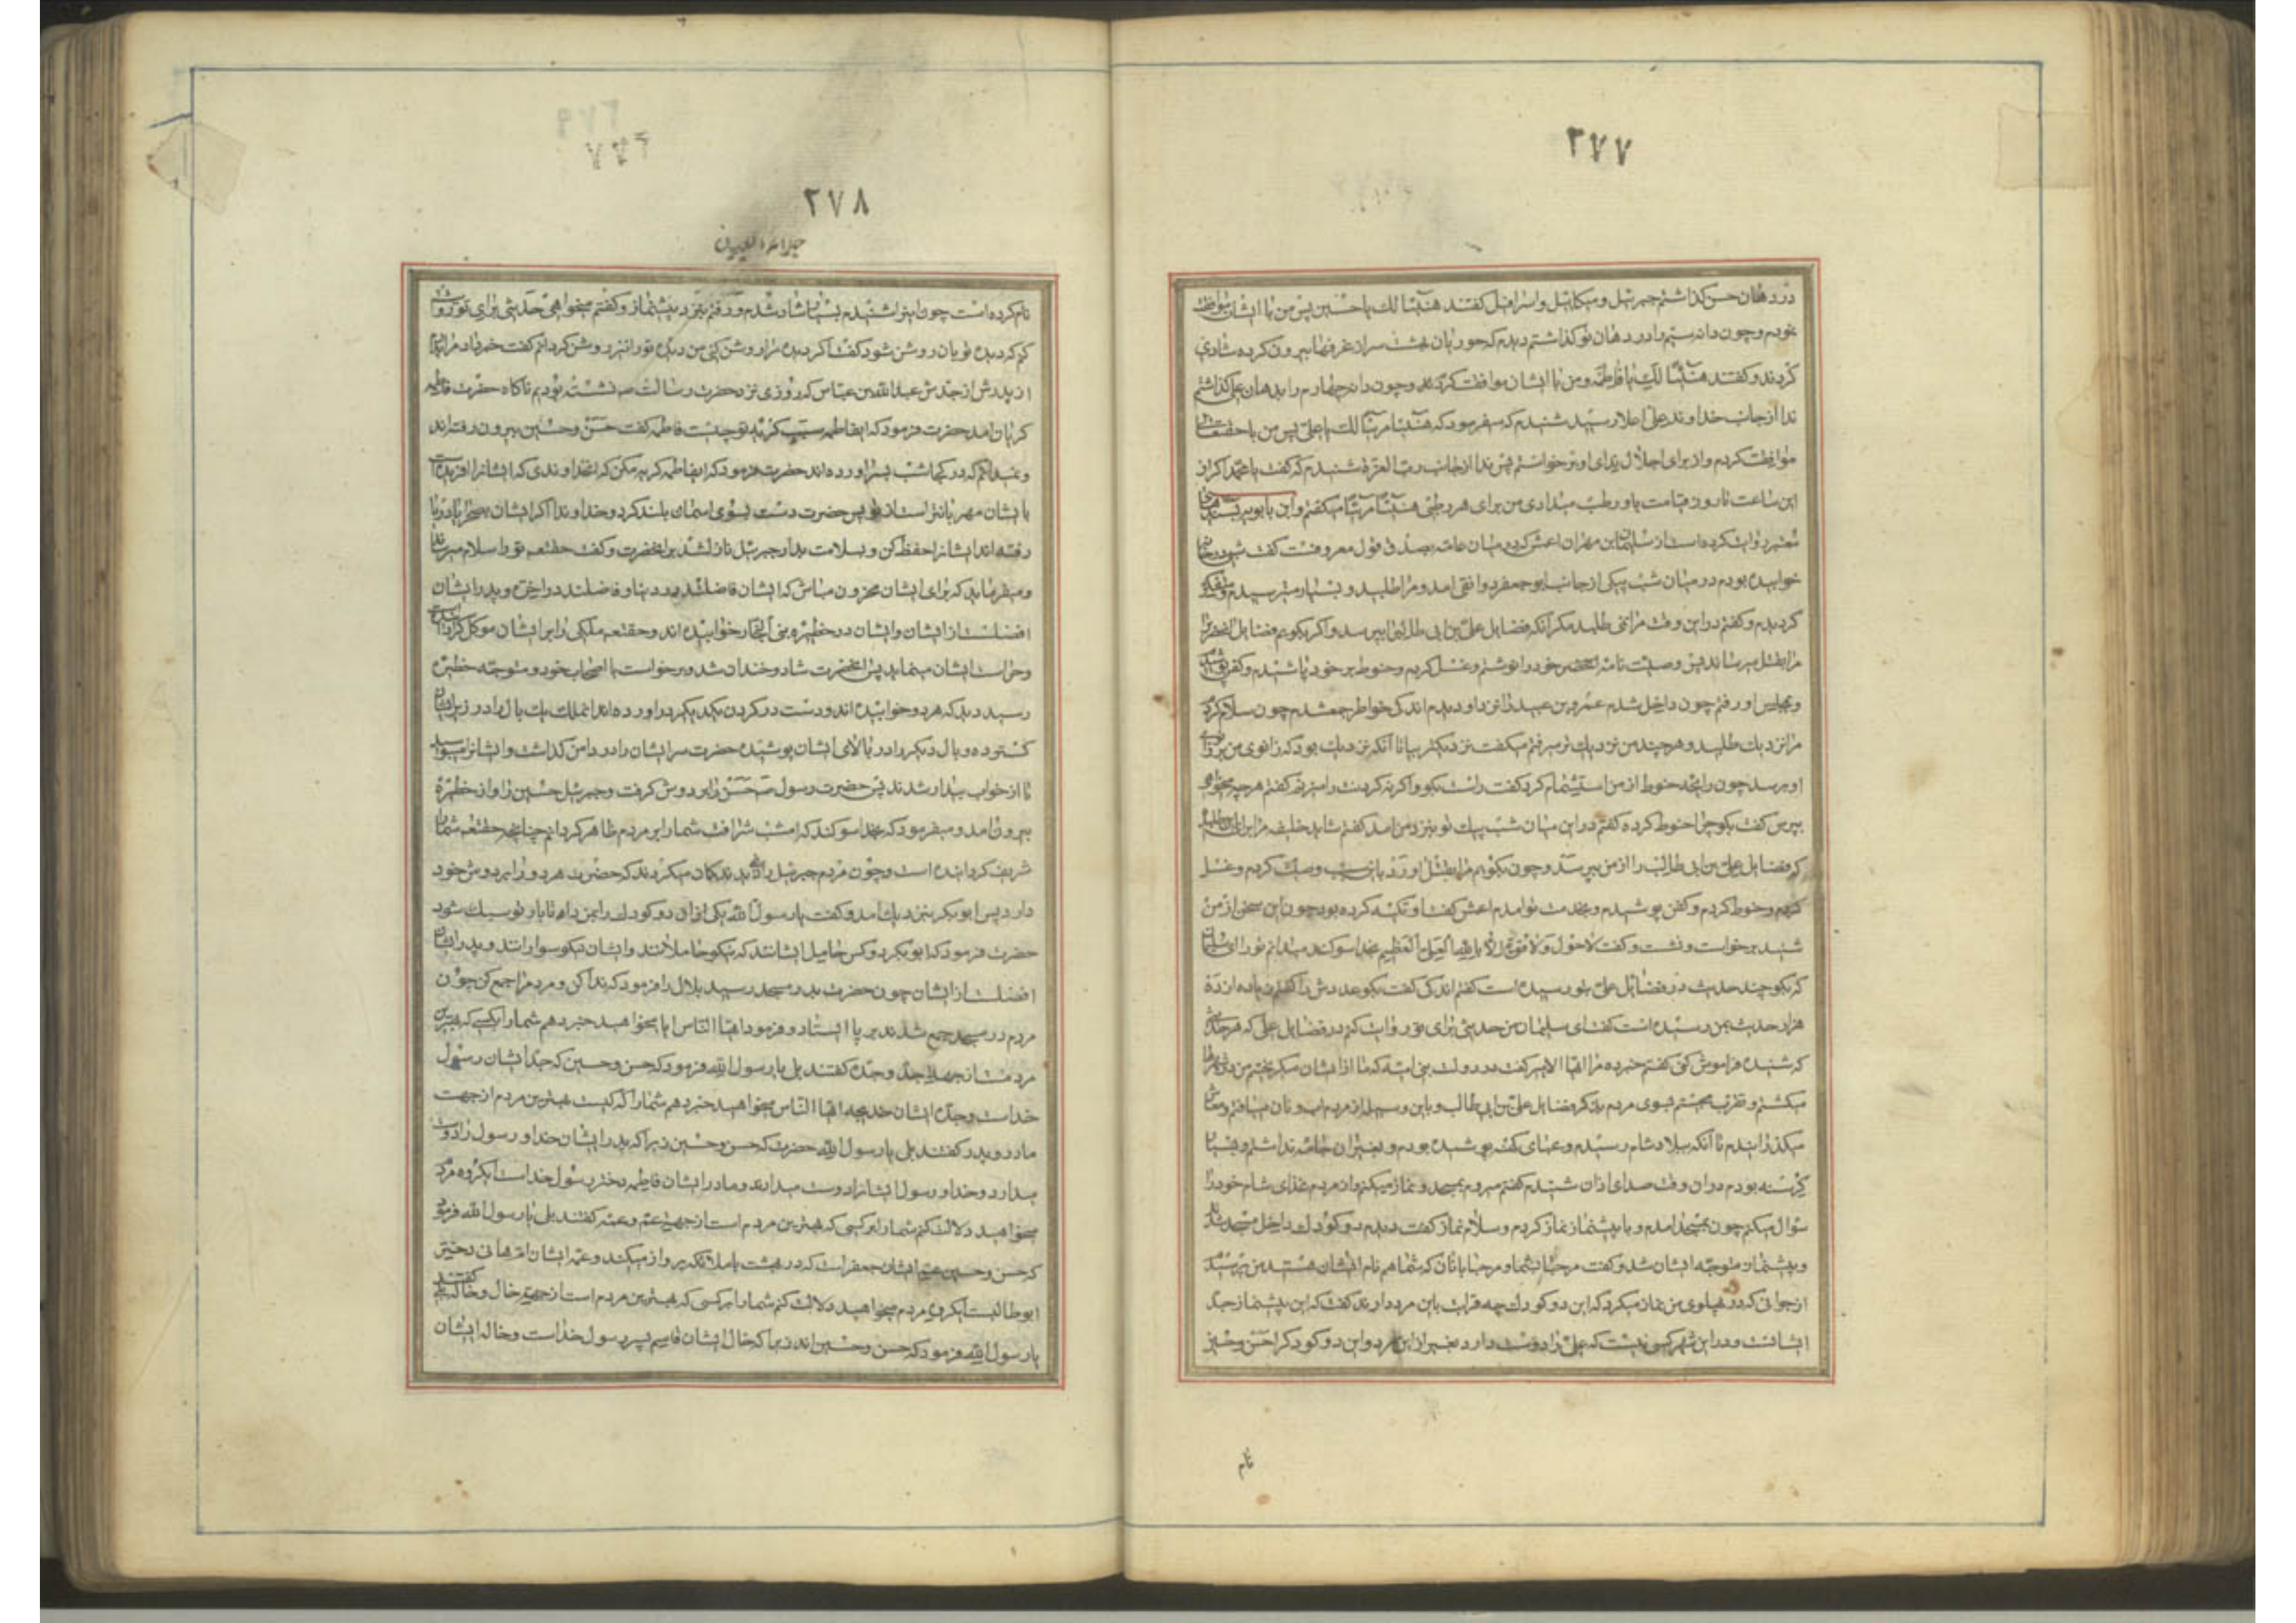 ۲۷۷
در دهان حسن گذاشتم جبرئیل و میکائیل و اسرافیل گفتند هنیئا لک یا حسین پس من با ایشان موافقت
نمودم و چون دانه سیم را در دهان تو گذاشتم دیدم که حوریان بهشت سر از غرفها بیرون کرده شادی
کردند و گفتند هنیئا لک یا فاطمه و من با ایشان موافقت کردم و چون دانه چهارم را بدهان علی گذاشتم
ندا از جانب خداوند علی اعلا رسید شنیدم که میفرمود که هنیئا مریئا لک یا علی پس من با حقتعالی
موافقت کردم و از برای اجلال ندای او برخواستم پس ندا از جانب رب العزة شنیدم که گفت یا محمد اگر از
این ساعت تا روز قیامت باو رطب میدادی من برای هر رطبی هنیئا مریئا میگفتم و ابن بابویه بسندهای
معتبر روایت کرده است از سلیمان بن مهران اعمش که در میان عامه بصدق قول معروفست گفت شبی در خانه
خوابیده بودم در میان شب پیکی از جانب ابو جعفر دوانقی امد و مرا طلبید و بسیار مترسیدم و متفکر
گردیدم و گفتم در این وقت مرا نمی طلبد مگر آنکه فضایل علی بن ابی طالب را بپرسد و اگر بگویم فضایل انحضرترا
مرا بقتل میرساند پس وصیت نامه خود را نوشتم و غسل کردم و حنوط بر خود پاشیدم و کفن پوشیدم
و بمجلس او رفتم چون داخل شدم عمرو بن عبید را نزد او دیدم اندکی خواطر جمع شدم چون سلام کردم
مرا نزدیک طلبید و هر چند من نزدیک تر میرفتم میگفت نزدیکتر بیا تا آنکه نزدیک بود که زانوی من بزانوی
او برسد چون رایحه حنوط از من استشمام کرد گفت راست بگو و اگر نه گردنت را میزنم گفتم هرچه میخواهی
بپرس گفت بگو چرا حنوط کرده گفتم در این میان شب پیک تو بنزد من امد گفتم شاید خلیفه مرا برای این طلبیده
که فضایل علی بن ابی طالب را از من بپرسد و چون بگویم مرا بقتل اورد باین سبب وصیت کردم و غسل
کردم و حنوط کردم و کفن پوشیدم و بخدمت تو امدم اعمش گفت او تکیه کرده بود چون این سخن از من
شنید برخواست و نشست و گفت لا حول و لا قوة الا بالله العلی العظیم بخدا سوگند میدهم تو را ای سلیمان
که بگو چند حدیث در فضائل علی بتو رسیده است گفتم اندکی گفت بگو عددش را گفتم زیاده از ده
هزار حدیث بمن رسیده است گفت ای سلیمان من حدیثی برای تو روایت کنم در فضایل علی که هر حدیثی
که شنیده فراموش کنی گفتم خبر ده مرا ایها الامیر گفت در دولت بنی امیه که ما از ایشان میگریختیم من در شهرها
میگشتم و تقرب میجستم بسوی مردم بذکر فضایل علی بن ابی طالب و باین وسیله از مردم اب و نان مییافتم و معاش
میگذرانیدم تا آنکه ببلاد شام رسیدم و عبای کهنه پوشیده بودم و بغیر از ان جامه نداشتم و بسیار
گرسنه بودم در ان وقت صدای اذان شنیدم گفتم میروم بمسجد و نماز میکنم و از مردم غذای شام خود را
سؤال میکنم چون بمسجد امدم و با پیشنماز نماز کردم و سلام نماز گفت دیدم دو کودک داخل مسجد شدند
و پیشنماز متوجه ایشان شد و گفت مرحبا بشما و مرحبا بانان که شما هم نام ایشان هستید من پرسیدم
از جوانی که در پهلوی من نماز میکرد که این دو کودک چه قرابت باین مرد دارند گفت که این پیشنماز جد
ایشانست و در این شهر کسی نیست که علی را دوست دارد بغیر از این مرد و این دو کودک را حسن و حسین
نام
۲۷۸
جلاء العیون
نام کرده است چون اینرا شنیدم بسیار شاد شدم و رفتم بنزد پیشنماز و گفتم میخواهی حدیثی برای تو روایت
کنم که دیده تو بان روشن شود گفت اگر دیده مرا روشن کنی من دیده تو را نیز روشن گردانم گفت خبر داد مرا پدرم
از پدرش از جدش عبدالله بن عباس که روزی نزد حضرت رسالت ص نشسته بودیم ناگاه حضرت فاطمه
گریان امد حضرت فرمود که ایفاطمه سبب گریه تو چیست فاطمه گفت حسن و حسین بیرون رفته‌اند
و نمیدانم که در کجا شب بسر اورده اند حضرت فرمود که ایفاطمه گریه مکن که انخداوندی که ایشانرا افریده است
بایشان مهربانتر است از تو پس حضرت دست بسوی اسمان بلند کرد و خداوندا اگر ایشان بصحرا یا دریا
رفته اند ایشانرا حفظ کن و بسلامت بدار جبرئیل نازل شد بر انحضرت و گفت حقتعم تو را سلام میرساند
و میفرماید که برای ایشان محزون مباش که ایشان فاضلند در دنیا و فاضلند در اخرت و پدر ایشان
افضلست از ایشان و ایشان در حظیره بنی النجار خوابیده اند و حقتعم ملکی را بر ایشان موکل گردانیده است
و حراست ایشان مینماید پس انحضرت شاد و خندان شد و برخواست با اصحاب خود و متوجه حظیره
رسید دید که هر دو خوابیده اند و دست در گردن یکدیگر در اورده اند انملک یک بال را در زیر ایشان
گسترده و بال دیگر را در بالای ایشان پوشیده حضرت سر ایشان را در دامن گذاشت و ایشانرا میبوسید
تا از خواب بیدار شدند پس حضرت رسول ص حسن را بر دوش گرفت و جبرئیل حسین را و از حظیره
بیرون امد و میفرمود که بخدا سوگند که امشب شرافت شما را بر مردم ظاهر گردانم چنانچه حقتعم شما را
شریف گردانیده است و چون مردم جبرئیل را نمی دیدند گمان میکردند که حضرت هر دو را بر دوش خود
دارد پس ابوبکر بنزدیک امد و گفت یا رسول الله یکی از ان دو کودک را بمن ده تا بار تو سبک شود
حضرت فرمود که ابوبکر دو کس حامل ایشانند که نیکو حاملانند و ایشان نیکو سوارانند و پدر ایشان
افضلست از ایشان چون حضرت بدر مسجد رسید بلال را فرمود که ندا کن و مردم را جمع کن چون
مردم در مسجد جمع شدند بر پا ایستاد و فرمود ایها الناس ایا میخواهید خبر دهم شما را بکسی که بهترین
مردمست از جهة جد و جده گفتند بلی یا رسول الله فرمود که حسن و حسین که جد ایشان رسول
خداست و جده ایشان خدیجه ایها الناس میخواهید خبر دهم شما را که کیست بهترین مردم از جهت
مادر و پدر گفتند بلی یا رسول الله حضرت که حسن و حسین زیرا که پدر ایشان خدا و رسول را دوست
میدارد و خدا و رسول ایشانرا دوست میدارند و مادر ایشان فاطمه دختر رسول خدا است ایگروه مردم
میخواهید دلالت کنم شما را بر کسی که بهترین مردم است از جهة عم و عمه گفتند بلی یا رسول الله فرمود
که حسن و حسین عم ایشان جعفر است که در بهشت با ملائکه پرواز میکند و عمه ایشان ام هانی دختر
ابوطالبست ایگروه مردم میخواهید دلالت کنم شما را بر کسی که بهترین مردم است از جهة خال و خاله گفتند بلی
یا رسول الله فرمود که حسن و حسین اند زیرا که خال ایشان قاسم پسر رسول خداست و خاله ایشان